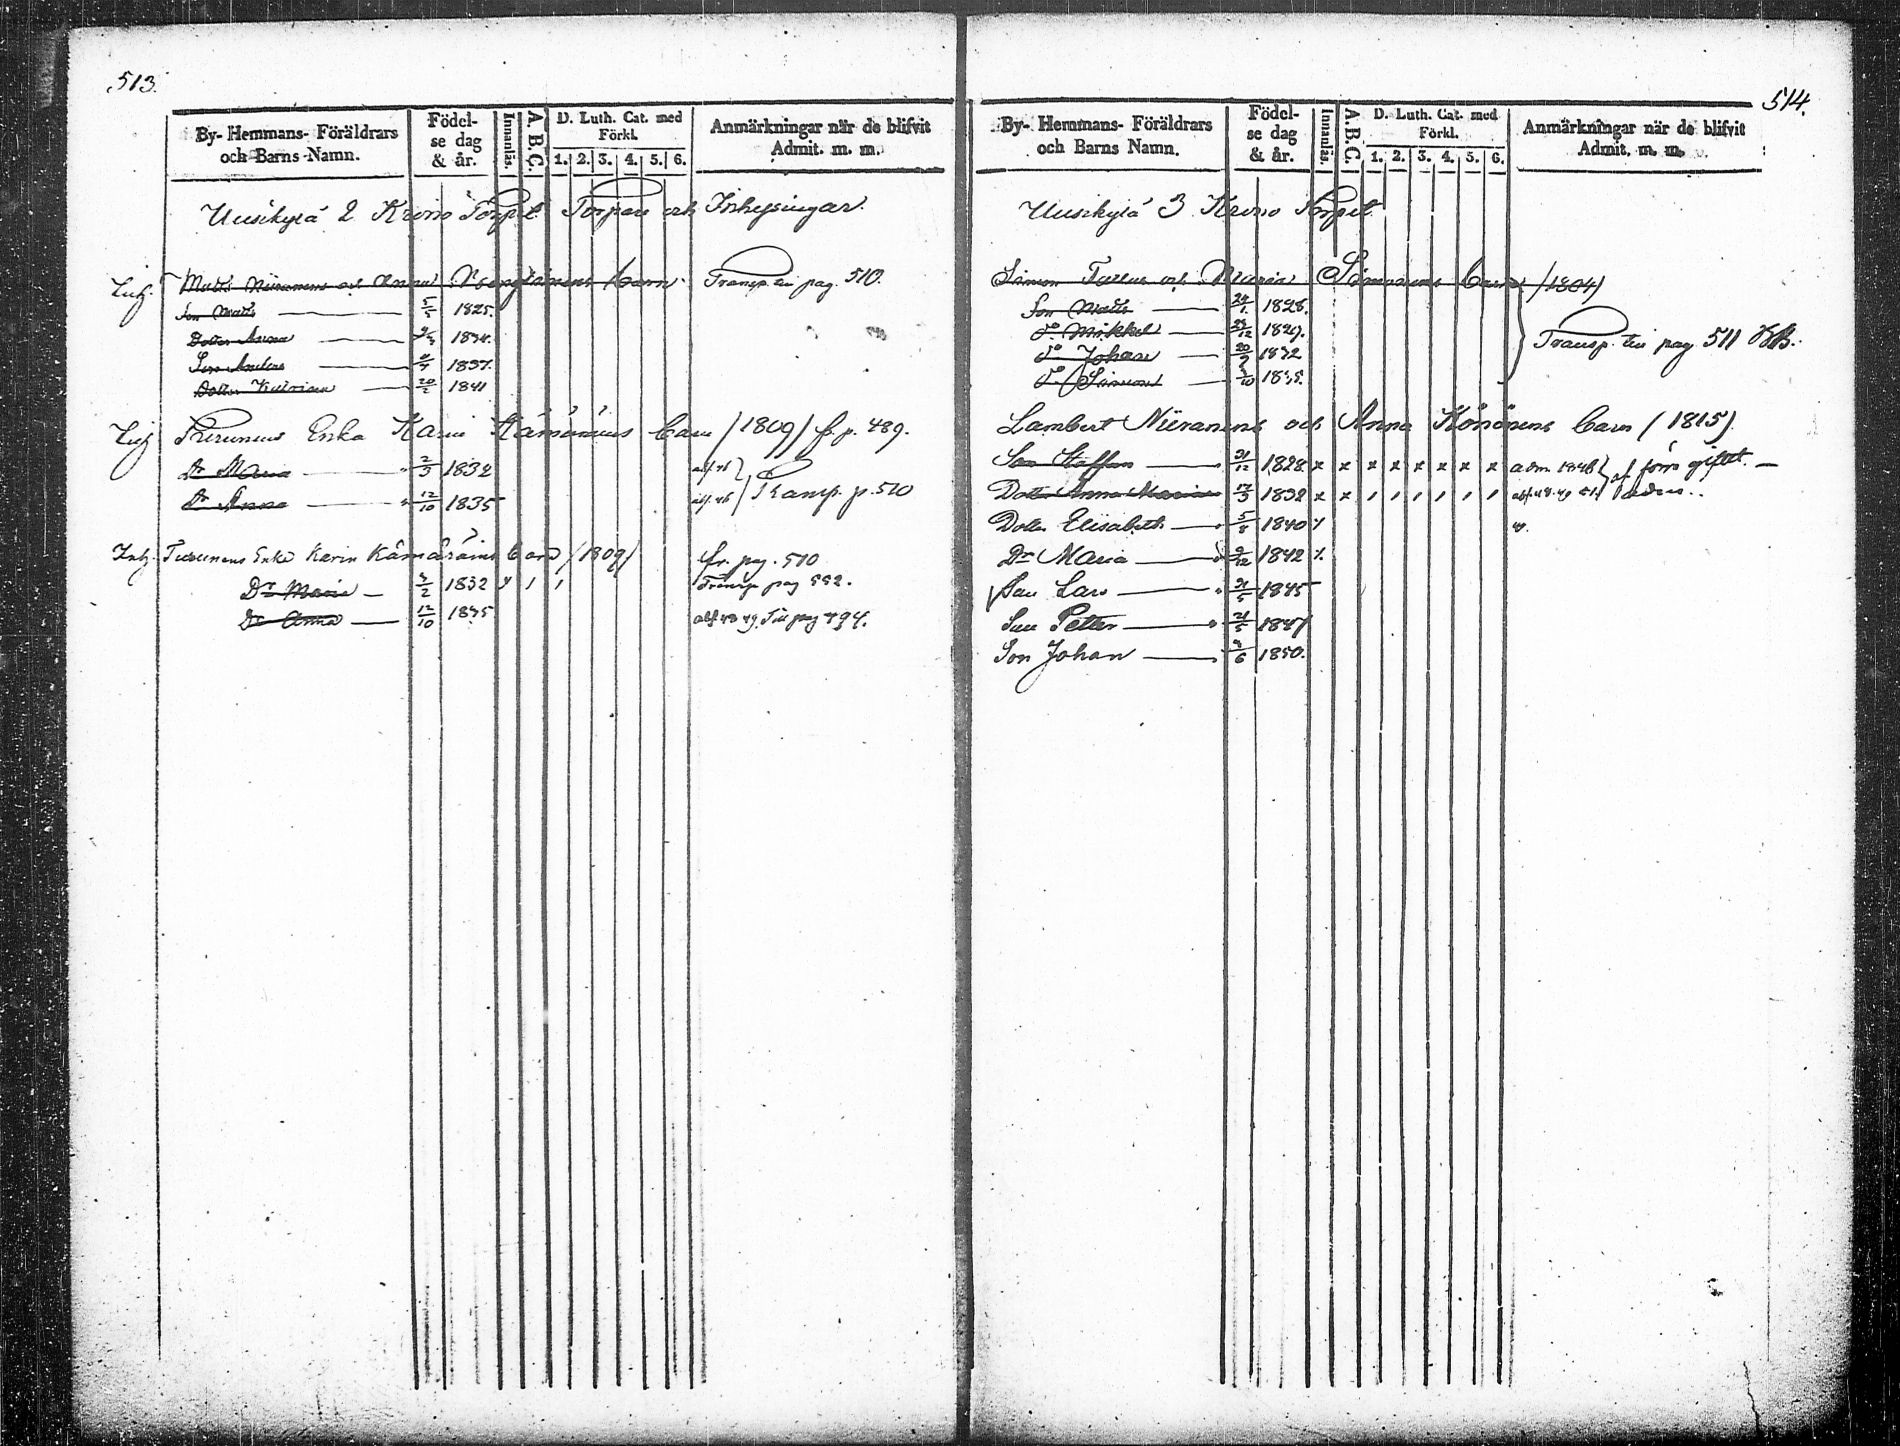 513.
By- Hemmans- Föräldrars och Barns Namn. Födelse dag & år. Innanläs. A. B. C. D. Luth. Cat. med Förkl. 1. 2. 3. 4. 5. 6. Anmärkningar när de blifvit Admit. m. m.
Uusikylä 2 Krono Torpet Torpare och Inhysingar.
Matts Niiranens och Anna barn Transp. till pag. 510.
Son Matts 1825.
Dotter Anna 1834.
Son Anders 1837.
Dotter 20/2 1841
Enka Karin Kämäräinens barn /1809/ fr. p. 489.
Dr Maria 2/3 1832
Dr Anna 12/10 1835 Transp. p. 510
Turunens Enka Karin Kämäräins barn /1809/ fr. pag. 510
Dr Maria 1832 Transp pag 552.
Dr Anna 12/10 1835 Till pag 494.
514.
By- Hemmans- Föräldrars och Barns Namn. Födelse dag & år. Innanläs. A. B. C. D. Luth. Cat. med Förkl. 1. 2. 3. 4. 5. 6. Anmärkningar när de blifvit Admit. m. m.
Uusikylä 3 Krono Torpet
Simon och Maria barn /1804/
Son Matts 24/1 1828.
Do Mikkel 1829.
Do Johan 20/9 1832
Do Simon 1835.
Transp. till pag 511
Lambert Niiranens och Anna Könönens barn /1815/.
Son Staffan 31/12 1828 x x x x x x x x adm. 1846 af förra giftet.
Dotter Anna Maria 17/3 1832 x x
Dotter Elisabeth 5/8 1840
Dr Maria 9/12 1842
Son Lars 1845
Son Petter 21/5 1847
Son Johan 1850.